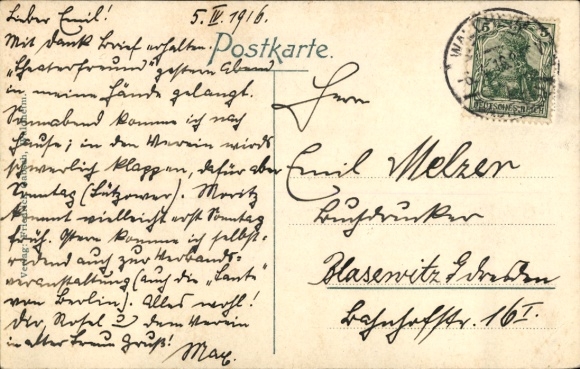 Lieber Emil! 5. IV. 1916.
Mit Dank Brief erhalten.
"Theaterfreund" gestern Abend
in meine Hände gelangt.
Sonnabend komme ich nach
Hause; in den Verein wirds
schwerlich klappen, dafür aber
Sonntag (Lützower). Moritz
kommt vielleicht erst Sonntag
früh. Ostern komme ich selbst-
redend auch zur Verbands-
veranstaltung (auch die "Tante"
von Berlin). Alles wohl!
Dir, Rosel u dem Verein
in alter Treue Gruß!
Max.
Postkarte.
Herrn
Emil Melzer
Buchdrucker
Blasewitz b/ Dresden
Bahnhofstr. 16 I.
DEUTSCHES REICH
5
Verlag: